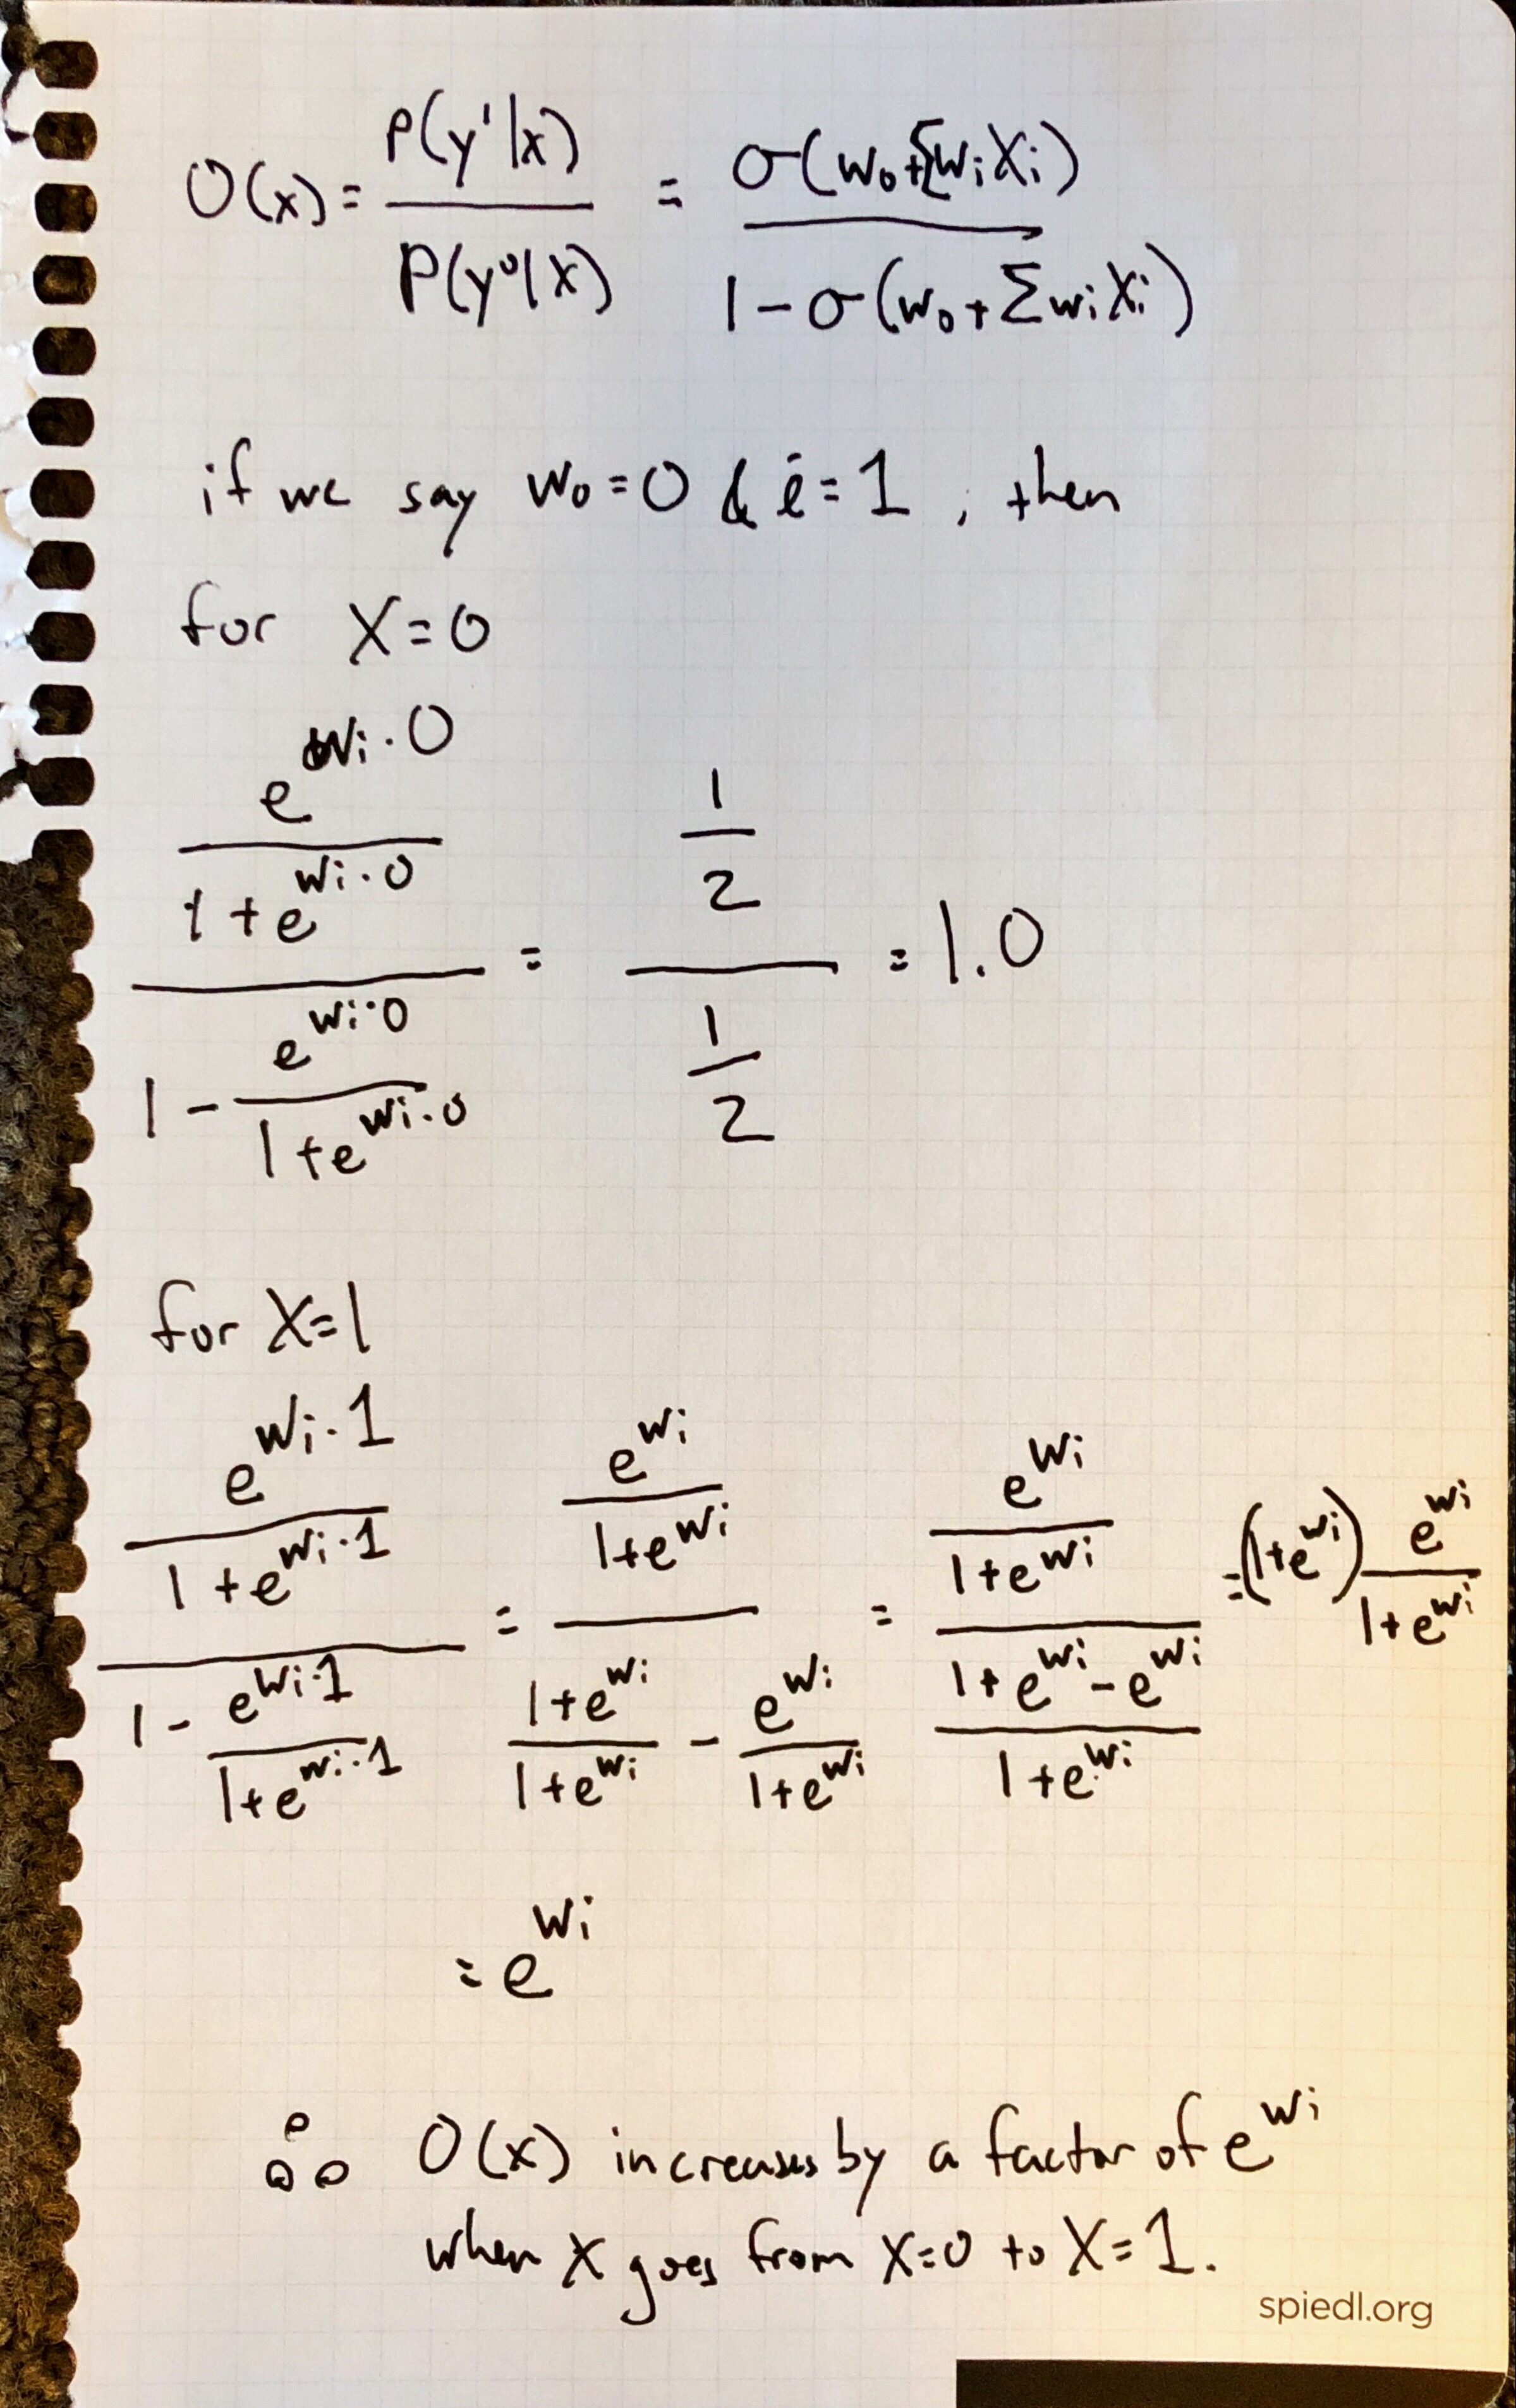 O(x) = P(y¹|x) / P(y⁰|x) = σ(w₀+Σwᵢxᵢ) / 1-σ(w₀+Σwᵢxᵢ)
if we say w₀=0 & i=1, then
for X=0
(e^(wᵢ·0) / 1+e^(wᵢ·0)) / (1 - e^(wᵢ·0) / 1+e^(wᵢ·0)) = (1/2) / (1/2) = 1.0
for X=1
(e^(wᵢ·1) / 1+e^(wᵢ·1)) / (1 - e^(wᵢ·1) / 1+e^(wᵢ·1)) = (e^wᵢ / 1+e^wᵢ) / (1+e^wᵢ / 1+e^wᵢ - e^wᵢ / 1+e^wᵢ) = (e^wᵢ / 1+e^wᵢ) / (1+e^wᵢ-e^wᵢ / 1+e^wᵢ) = (1+e^wᵢ) e^wᵢ / 1+e^wᵢ
= e^wᵢ
∴ O(x) increases by a factor of e^wᵢ
when x goes from x=0 to X=1.
spiedl.org